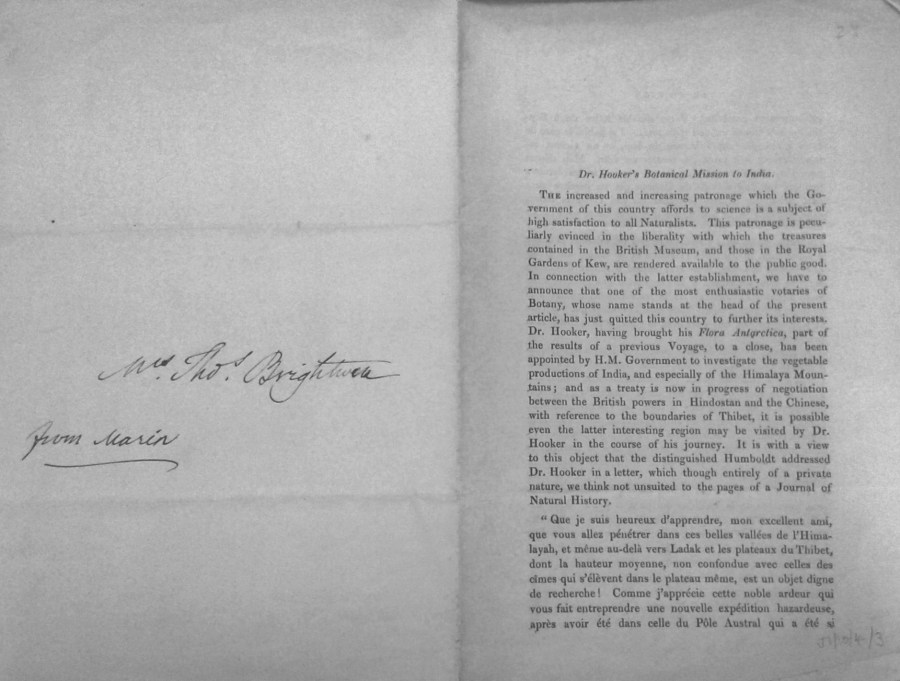 Mrs. Thos. Brightwen
from Maria
Dr. Hooker's Botanical Mission to India.
THE increased and increasing patronage which the Go-
vernment of this country affords to science is a subject of
high satisfaction to all Naturalists. This patronage is pecu-
liarly evinced in the liberality with which the treasures
contained in the British Museum, and those in the Royal
Gardens of Kew, are rendered available to the public good.
In connection with the latter establishment, we have to
announce that one of the most enthusiastic votaries of
Botany, whose name stands at the head of the present
article, has just quitted this country to further its interests.
Dr. Hooker, having brought his Flora Antarctica, part of
the results of a previous Voyage, to a close, has been
appointed by H.M. Government to investigate the vegetable
productions of India, and especially of the Himalaya Moun-
tains; and as a treaty is now in progress of negotiation
between the British powers in Hindostan and the Chinese,
with reference to the boundaries of Thibet, it is possible
even the latter interesting region may be visited by Dr.
Hooker in the course of his journey. It is with a view
to this object that the distinguished Humboldt addressed
Dr. Hooker in a letter, which though entirely of a private
nature, we think not unsuited to the pages of a Journal of
Natural History.
"Que je suis heureux d'apprendre, mon excellent ami,
que vous allez pénétrer dans ces belles vallées de l'Hima-
layah, et même au-delà vers Ladak et les plateaux du Thibet,
dont la hauteur moyenne, non confondue avec celles des
cîmes qui s'élèvent dans le plateau même, est un objet digne
de recherche! Comme j'apprécie cette noble ardeur qui
vous fait entreprendre une nouvelle expédition hazardeuse,
après avoir été dans celle du Pôle Austral qui a été si